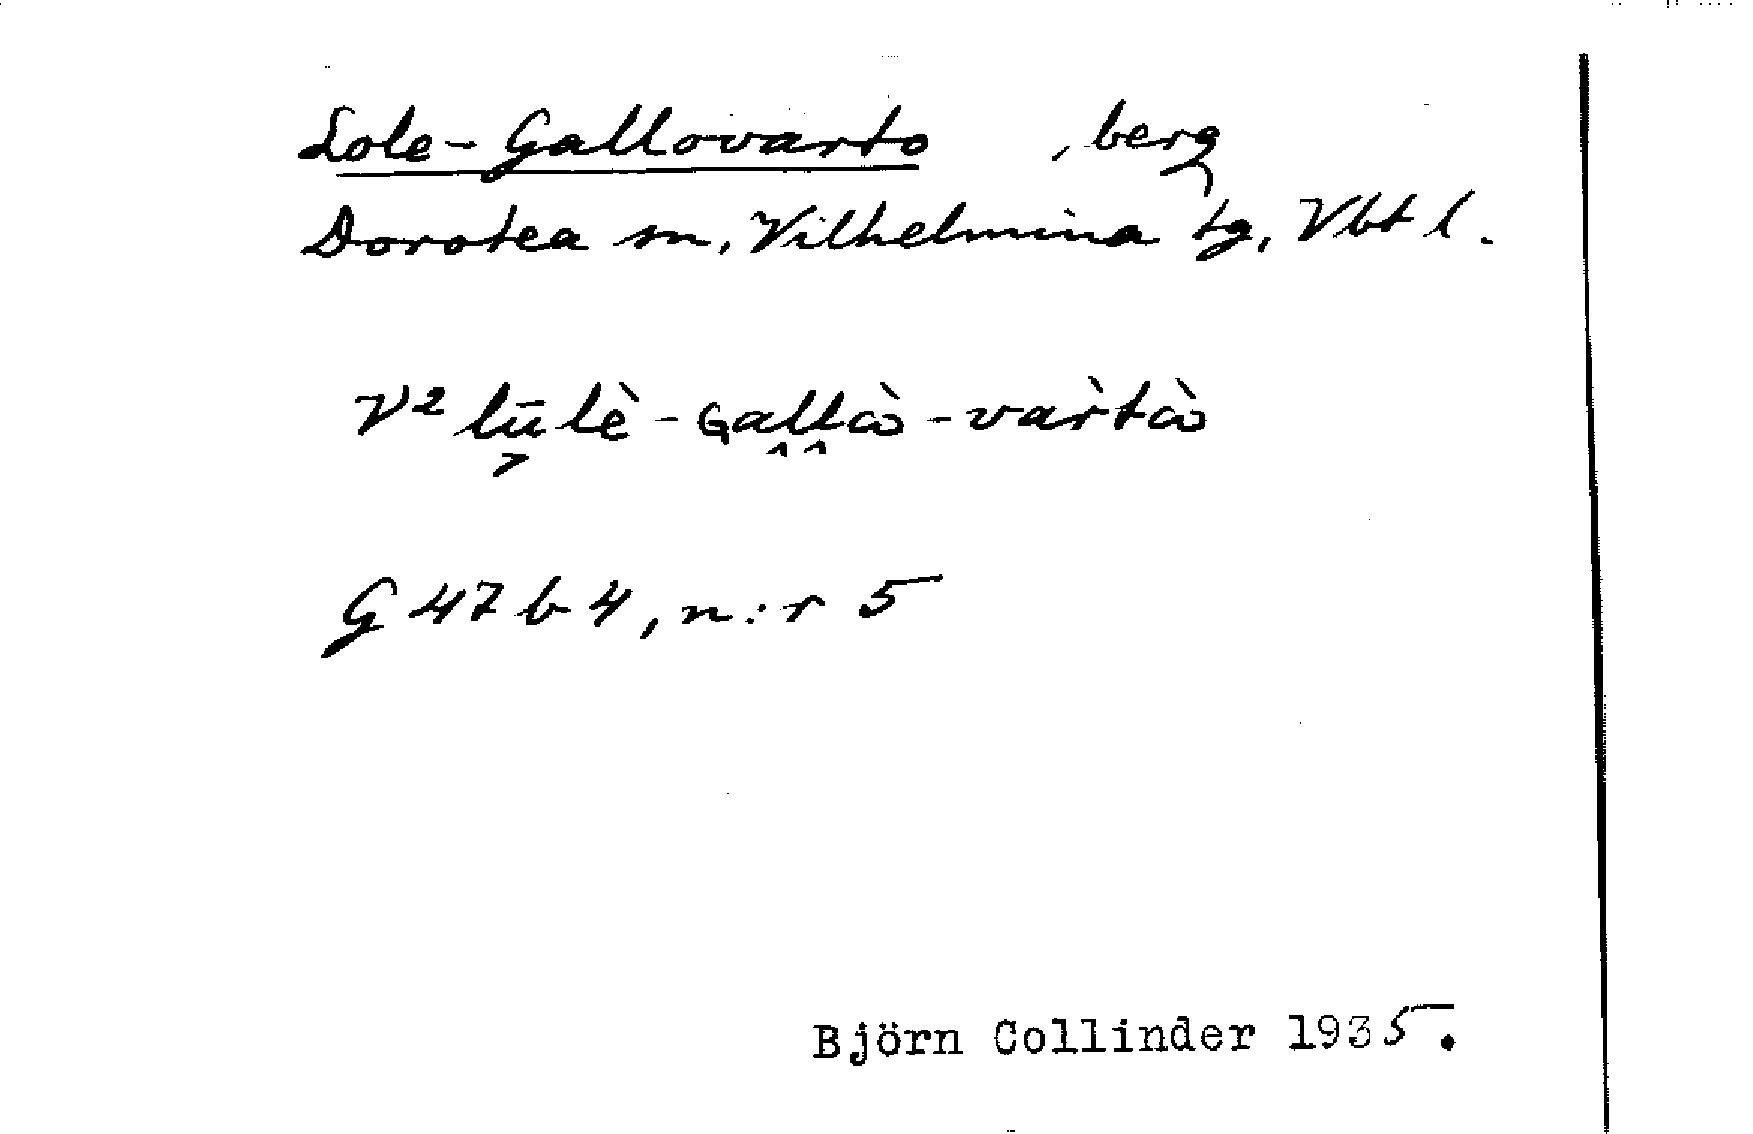 Lole-Gallovarto , berg
Dorotea sn, Vilhelmina tg, Vbtl.
V² lū̱lè - Gaḽḽὼ - vàrtὼ
G 47 b 4, n:r 5
Björn Collinder 1935.